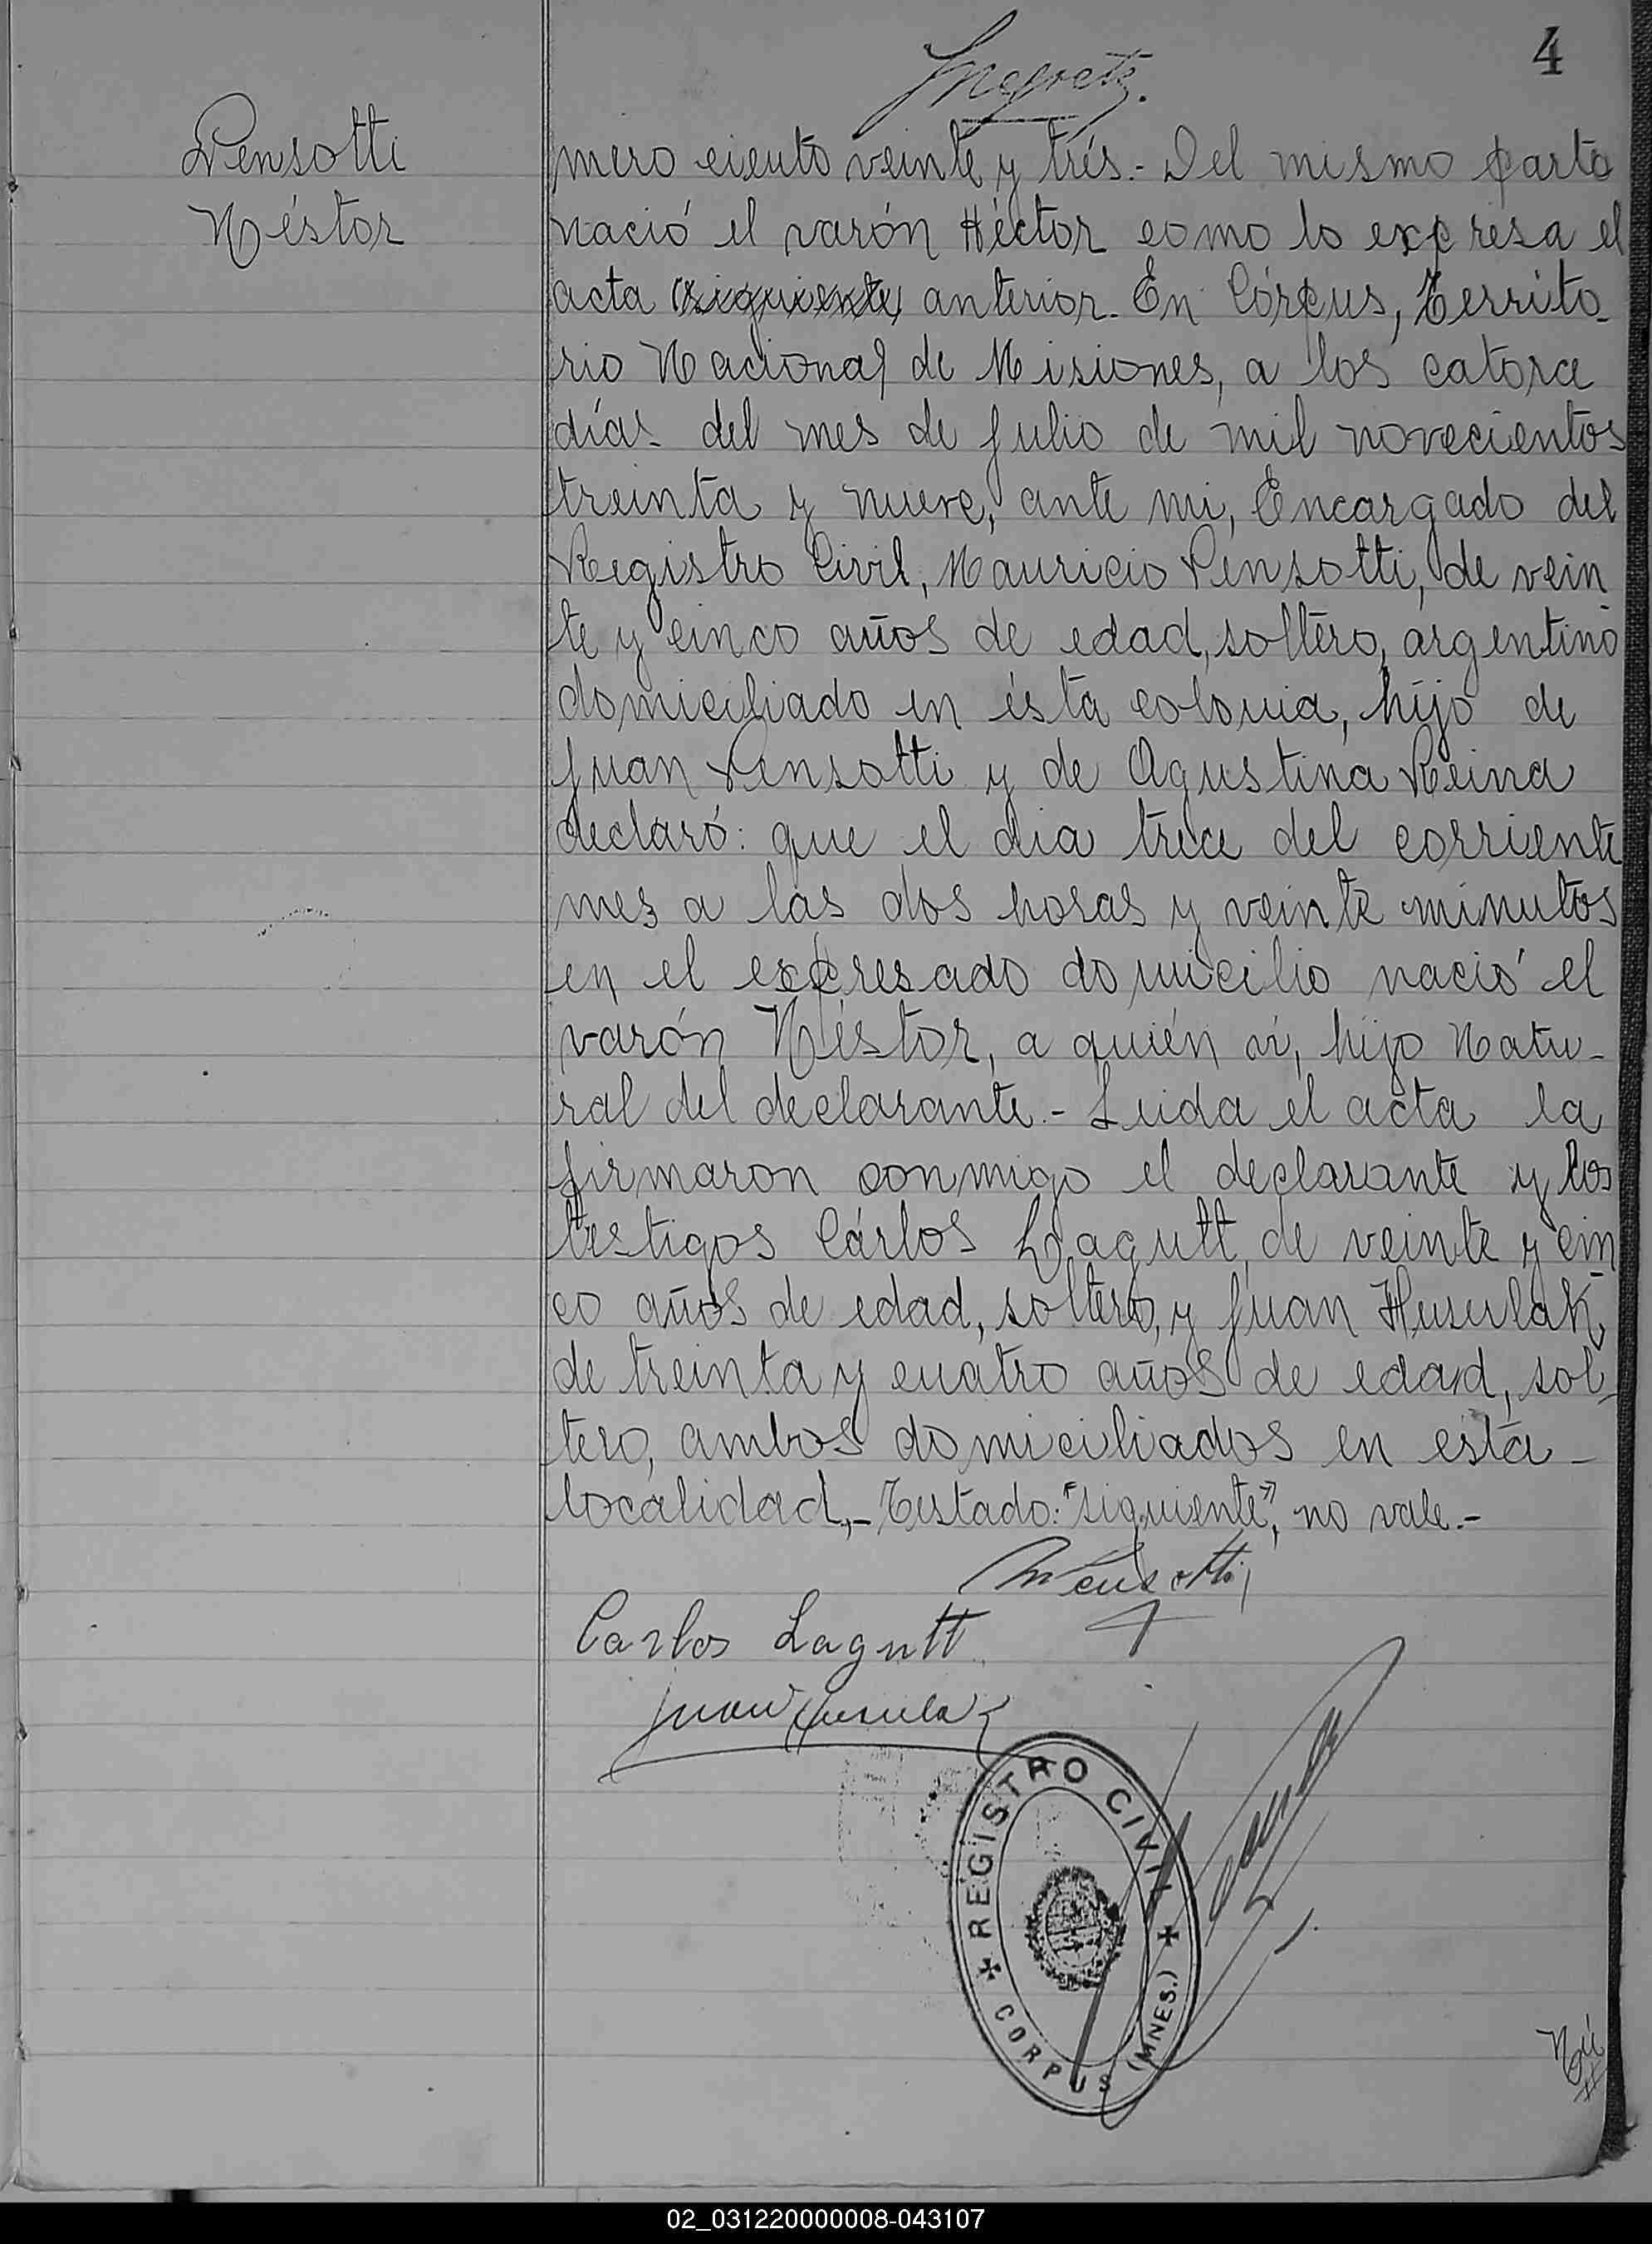 4
Pensotti
Néstor
mero ciento veinte y trés.- Del mismo parto
nació el varón Héctor como lo expresa el
acta (siguiente) anterior. En Córpus, Territo-
rio Nacional de Misiones, a los catorce
días del mes de Julio de mil novecientos
treinta y nueve, ante mi, Encargado del
Registro Civil, Mauricio Pensotti, de vein
te y cinco años de edad, soltero, argentino
domiciliado en ésta colonia, hijo de
Juan Pensotti y de Agustina Reina
declaró: que el dia trece del corriente
mes a las dos horas y veinte minutos
en el expresado domicilio nació el
varón Néstor, a quién ví, hijo Natu-
ral del declarante.- Leida el acta la
firmaron conmigo el declarante y los
testigos Cárlos Lagutt, de veinte y cin
co años de edad, soltero, y Juan Husulak,
de treinta y cuatro años de edad, sol-
tero, ambos domiciliados en esta-
localidad,- Testado: "siguiente", no vale.-
MPensotti
Carlos Lagutt
Juan Husulak
REGISTRO CIVIL
CORPUS (MNES.)
Nú
02_031220000008-043107